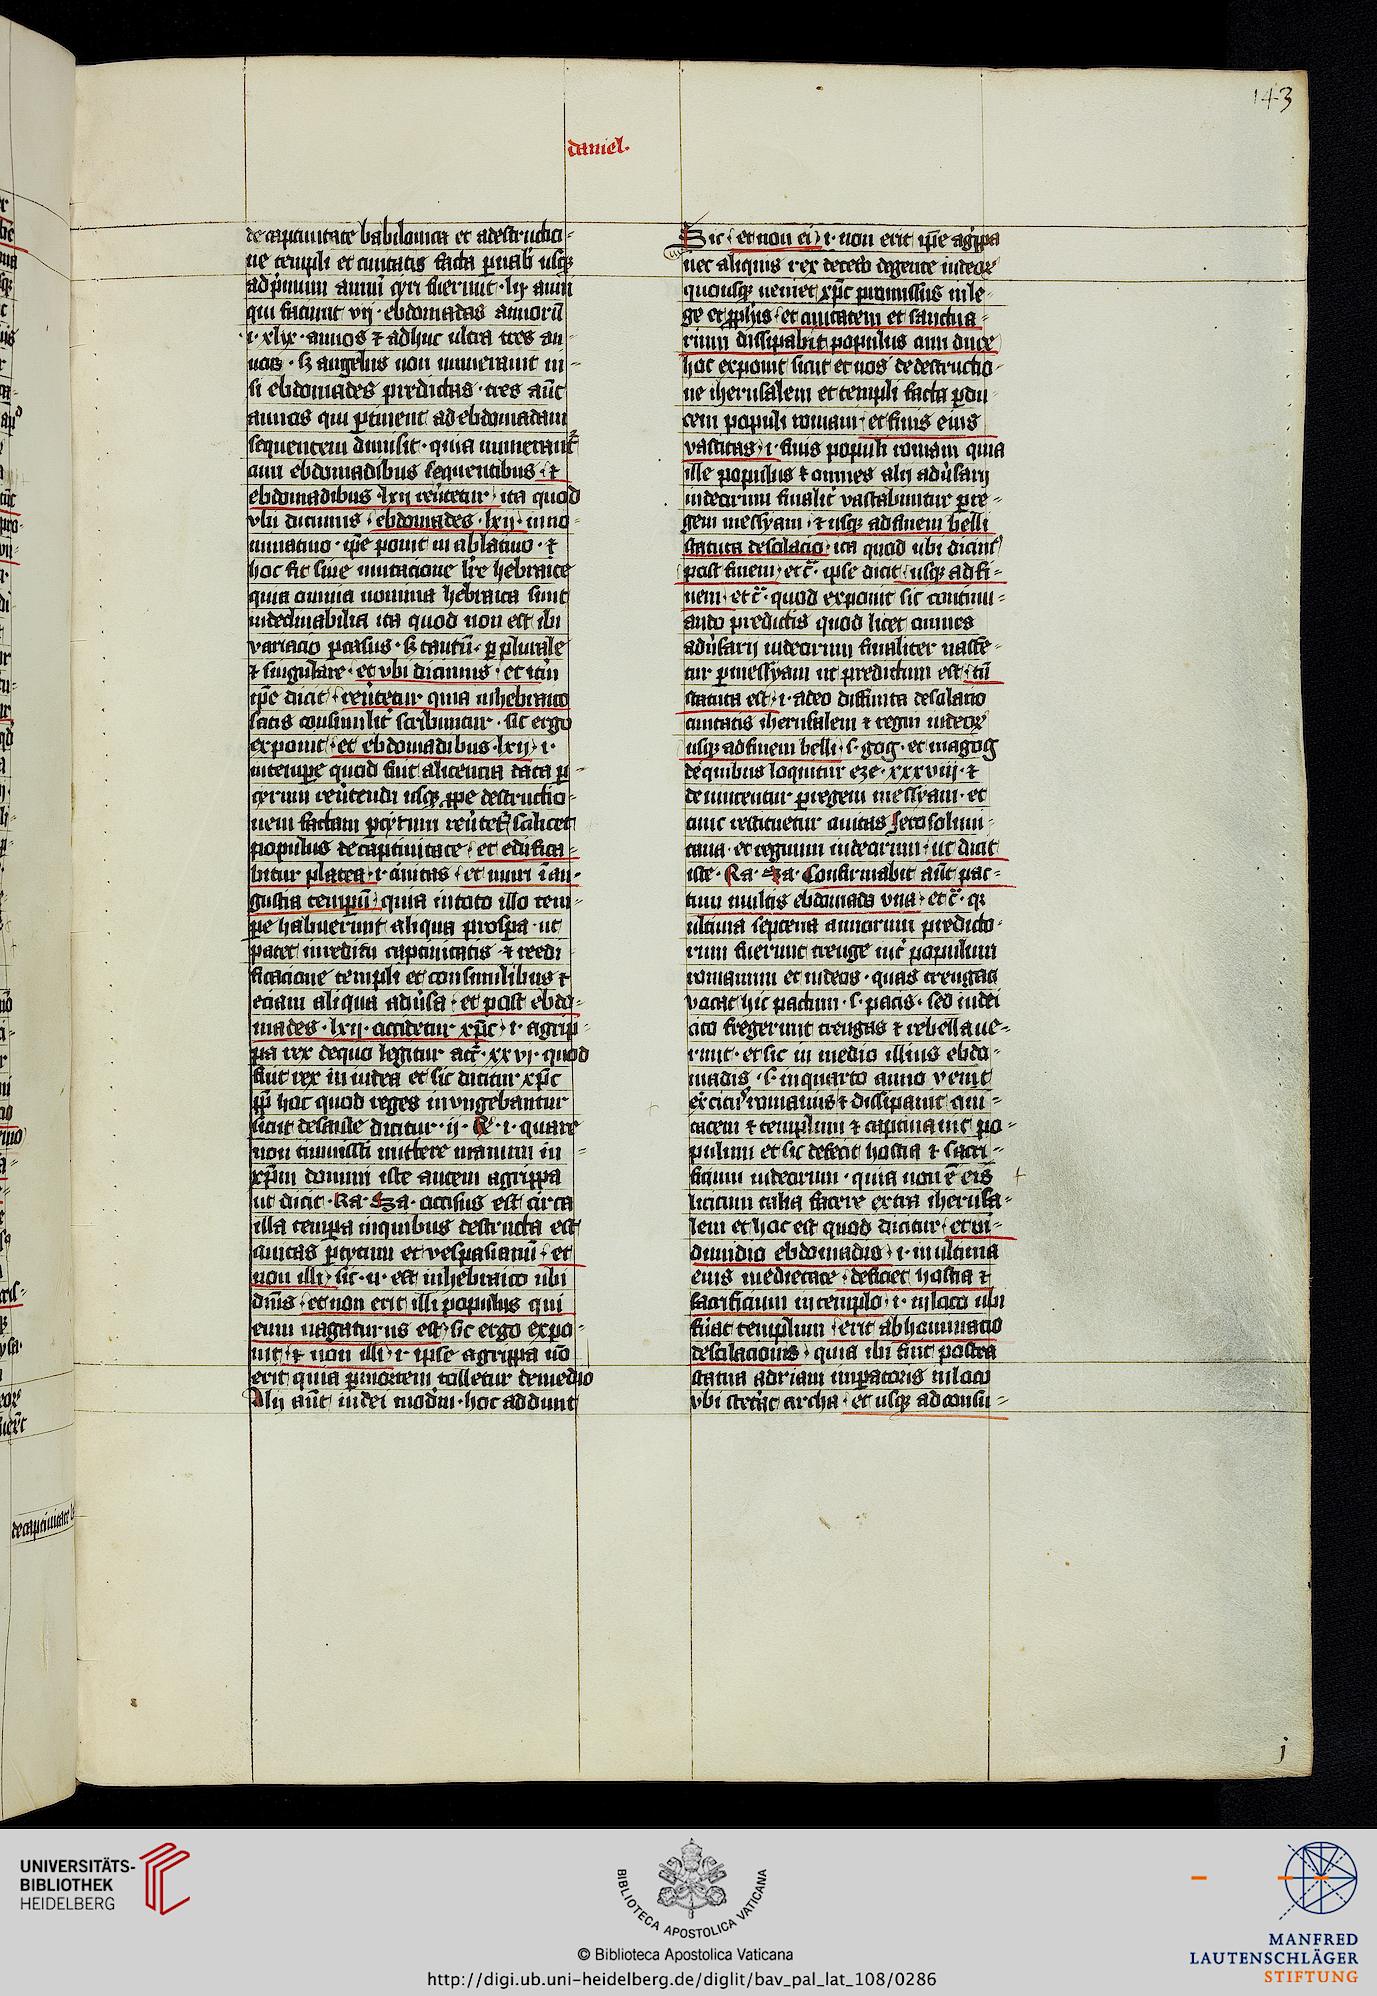 143
daniel.
de captiuitate babilonica et a destructio=
ne templi et ciuitatis facta p nab usq
ad pmum annu cyri fuerunt · lij anni
qui faciunt vij · ebdomadas annoru
· i · xlix · annos ⁊ adhuc ultra tres an
nos · sz angelus non numerauit ni=
si ebdomades predictas · tres aut
annos qui ptinent ad ebdomadam
sequentem dimisit · quia numerant
cum ebdomadibus sequentibus · ⁊
ebdomadibus · lxij reutetur · ita quod
vbi dicimus · ebdomades · lxij · in no
minatiuo · ipe ponit in ablatiuo · ⁊
hoc fit sine mutacione lre hebraice
quia omnia nomina hebraica sunt
indeclinabilia ita quod non est ibi
variacio p casus · sz tantu · p plurale
⁊ singulare · et vbi dicimus · et itm
ipe dicit · reutetur quia in hebraico
satis consimilit scribuntur · sic ergo
exponit · et ebdomadibus · lxij · i ·
in tempe quod fuit a licencia data p
cyrum reutendi usq ppe destructio=
nem factam p tytum reutet scilicet
populus de captiuitate · et edifica=
bitur platea · i · ciuitas · et muri i an=
gustia tempu · quia in toto illo tem=
pe habuerunt aliqua prospa · ut
patet in reditu captiuitatis · ⁊ reedi
ficacione templi et consimilibus ⁊
eciam aliqua adusa · et post ebdo=
mades · lxij · occidetur xpc · i · agrip=
pa rex de quo legitur act · xxvj · quod
fuit rex in iudea et sic dicitur xpc
pp hoc quod reges inungebantur
sicut de saule dicitur · ij · Re · i · quare
non timuisti mittere manum in
xpm domini iste autem agrippa
ut dicit · Ra · Sa · occisus est circa
illa tempa in quibus destructa est
ciuitas p tytum et vespasianu · et
non illi · sic · n · est in hebraico ubi
dms · et non erit illi populus qui
eum negaturus est · sic ergo expo=
nit · ⁊ non illi · i · ipse agrippa no
erit quia p mortem tolletur de medio
Alij aut iudei modni · hoc addunt
Sic · et non ei · i · non erit ipe agrppa
nec aliquis rex de ceto de gente iudeor
quousq ueniet xpc promissus in le=
ge et pphis · et ciuitatem et sanctua=
rium dissipabit populus cum duce
hoc exponit sicut et nos de destructio=
ne iherusalem et templi facta p du
cem populi romani · et finis eius
vastitas · i · finis populi romani quia
ille populus ⁊ omnes alij adusarij
iudeorum finalit vastabuntur p re=
gem messyam · ⁊ usq ad finem belli
statuta desolacio · ita quod ubi dicimt
post finem · et c · ipse dicit · usq ad fi=
nem · et c · quod exponit sic continu=
ando predictis quod licet omnes
adusarij iudeorum finaliter vaste=
tur p messyam ut predictum est · tn
statuta est · i · adeo diffinita desolatio
ciuitatis iherusalem ⁊ regni iudeor
usq ad finem belli · s · gog · et magog
de quibus loquitur eze · xxxviij · ⁊
deuincentur p regem messyam · et
tunc restituetur ciuitas Jerosolimi=
tana · et regnum iudeorum · ut dicit
iste · Ra · Sa · Confirmabit aut pac=
tum multis ebdomada vna · et c · qr
ultima septena annorum predicto=
rum fuerunt treuge int populum
romanum et iudeos · quas treugas
vocat hic pactum · s · pacis · sed iudei
cito fregerunt treugas ⁊ rebellaue=
runt · et sic in medio illius ebdo=
madis · s · in quarto anno venit
excitus romanus ⁊ dissipauit ciui=
tatem ⁊ templum ⁊ captiuauit po=
pulum et sic defecit hostia ⁊ sacri=
ficium iudeorum · quia non e eis
licitum talia facere extra iherusa=
lem et hoc est quod dicitur · et in=
dimidio ebdomadis · i · in ultima
eius medietate · deficiet hostia ⁊
sacrificium in templo · i · in loco ubi
fuat templum · erit abhominatio
desolacionis · quia ibi fuit postea
statua adriani imperatoris in loco
vbi stetat archa · et usq ad consu=
j
de captiuitate
UNIVERSITÄTS-
BIBLIOTHEK
HEIDELBERG
BIBLIOTECA APOSTOLICA VATICANA
© Biblioteca Apostolica Vaticana
http://digi.ub.uni-heidelberg.de/diglit/bav_pal_lat_108/0286
MANFRED
LAUTENSCHLÄGER
STIFTUNG